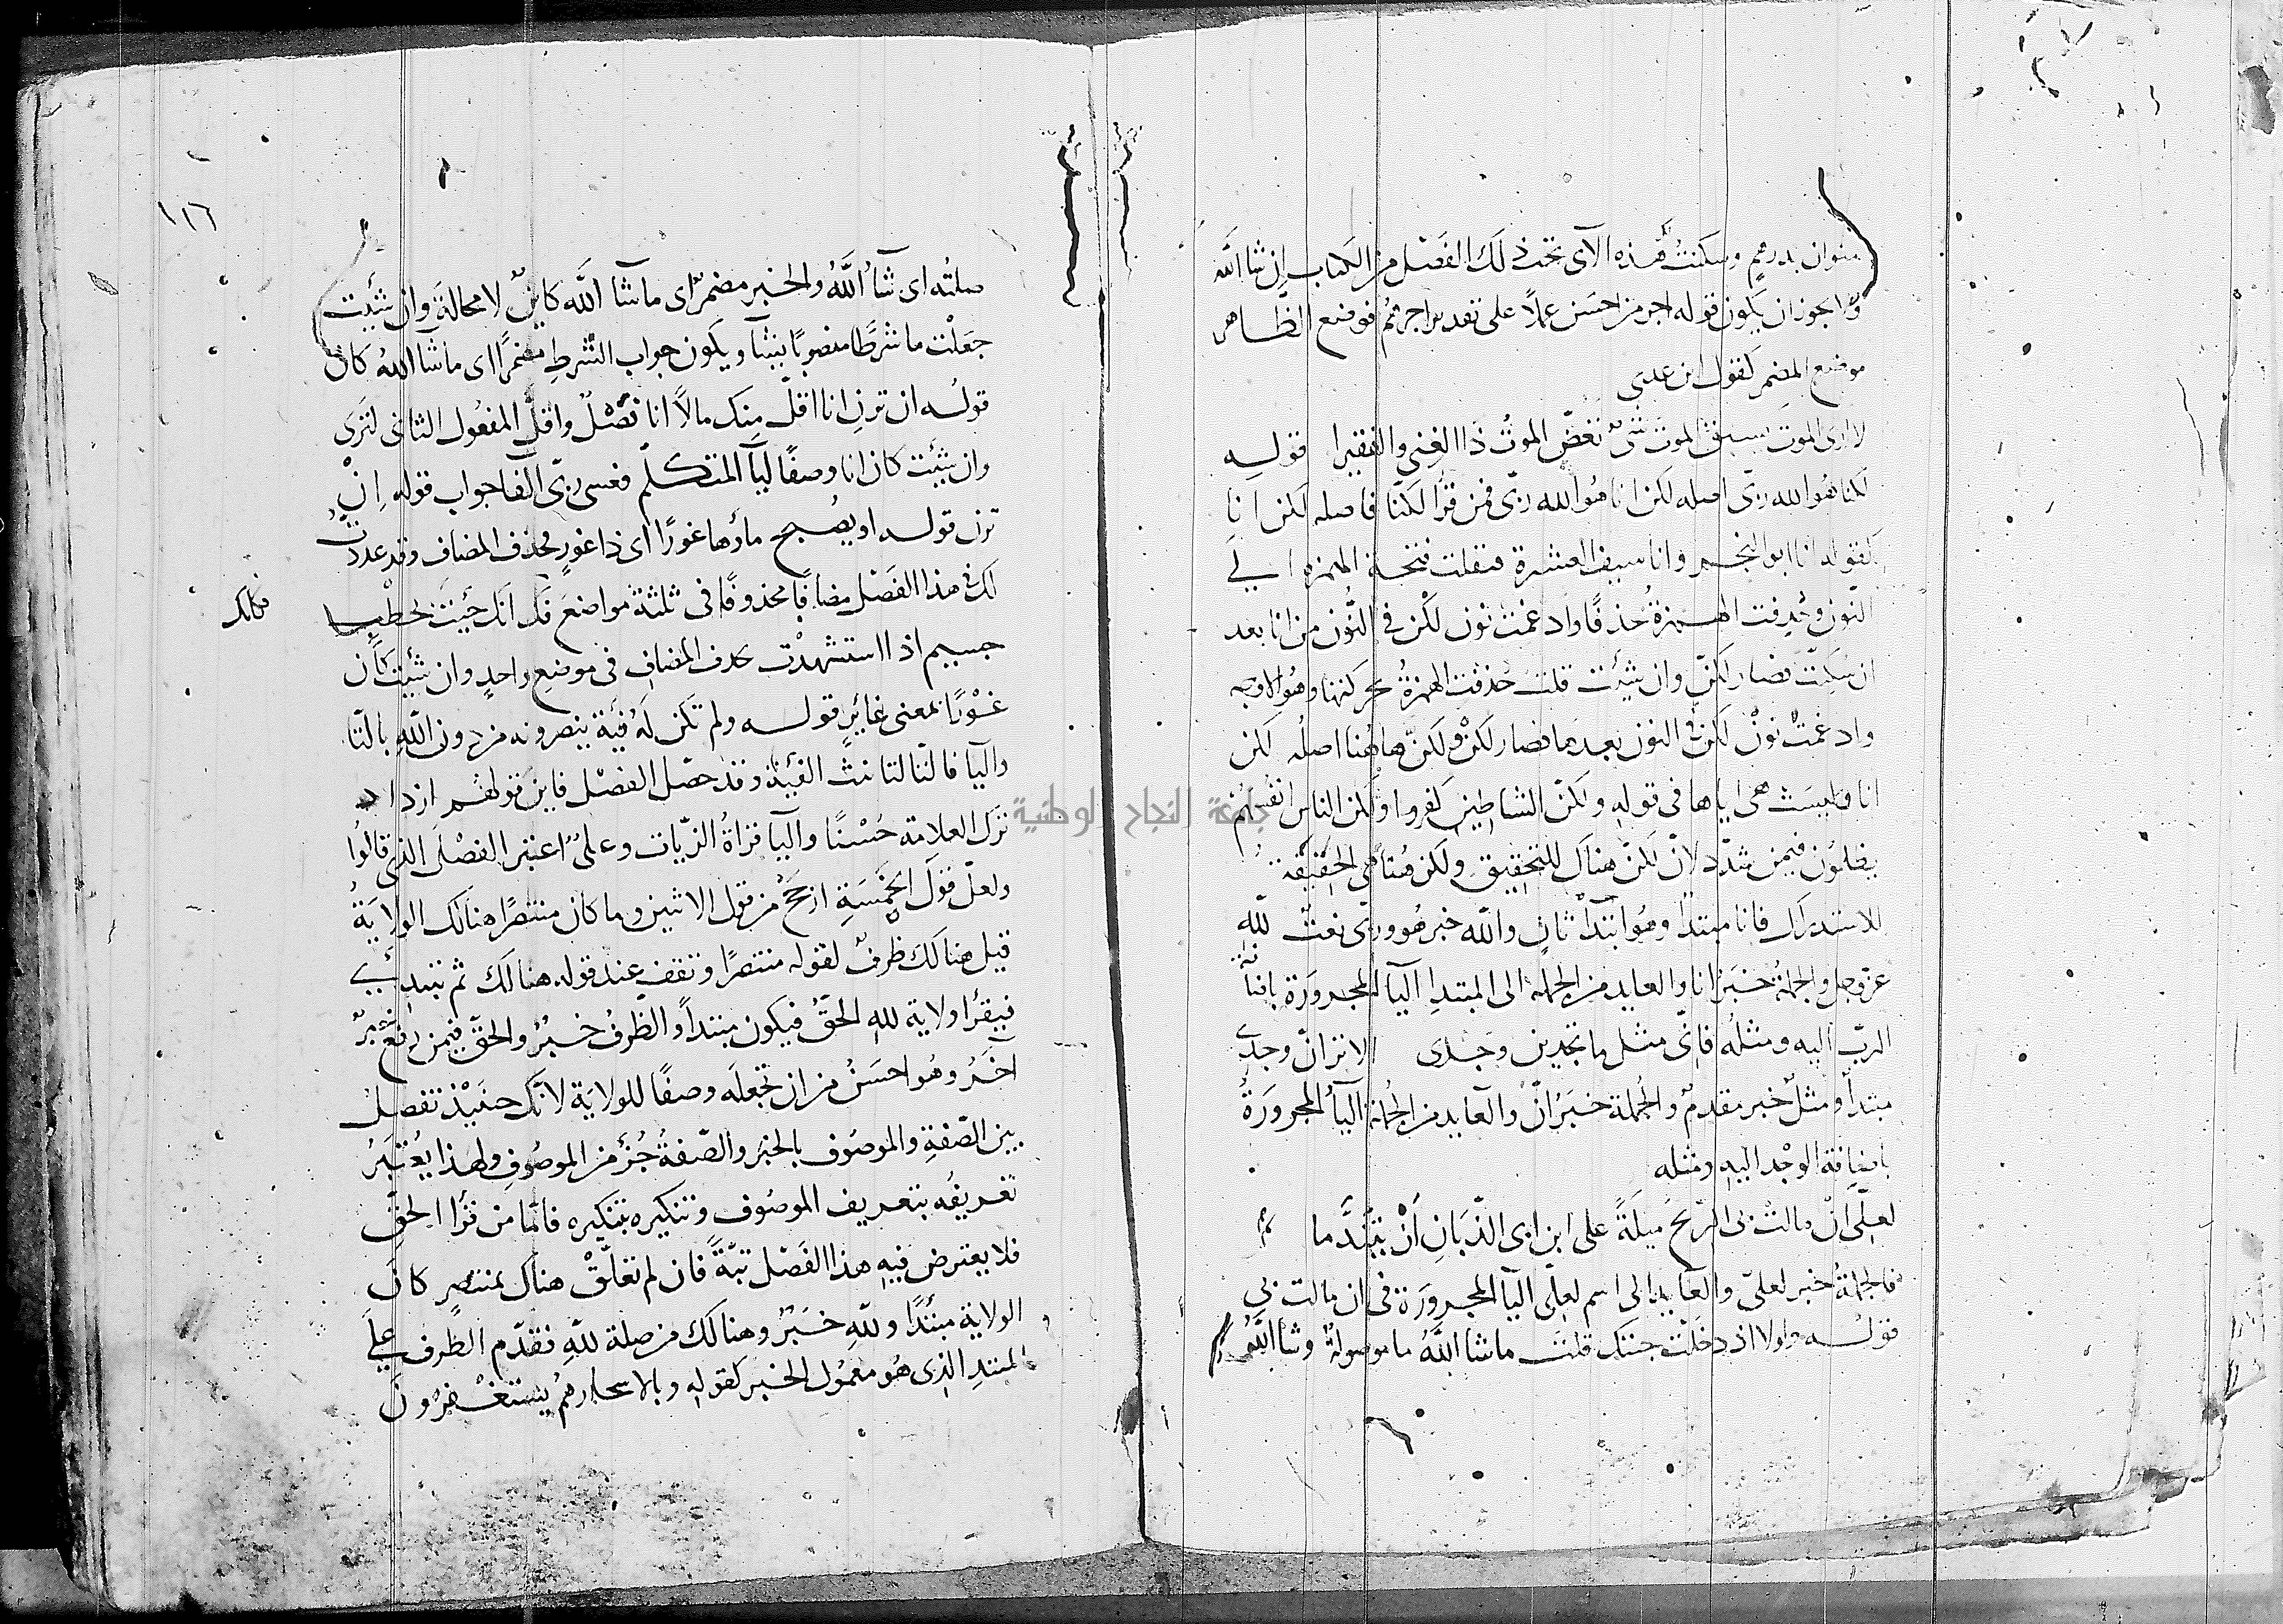 منوان بدرهم وستكتب هذه الآى تحت ذلك الفصل من الكتاب ان شا الله
ويجوز ان يكون قوله اجر من احسن عملاً على تقدير اجرهم فوضع الظاهر
موضع المضمر كقول ابن عدى
لا ارى الموت يسبق الموت شىٌ نغّص الموتُ ذا الغنى والفقيرا قوله
لكنا هو الله ربى اصله لكن انا هو الله ربى فمن قرا لكنّا فاصله لكن انا
كقوله انا ابو النجم وانا سيف العشيرة فنقلت فتحة الهمزة الى
النّون وحُذفت الهمزة حذفًا وادغمت نون لكن فى النّون من انا بعد
ان سكنت فصار لكنّ وان شيئت قلت حذفت الهمزةُ بحركتها وهو الاوجه
وادغمت نونْ لكن فى النون بعدها فصار لكن ولكنّ هاهنا اصله لكن
انا وليست هى اياها فى قوله ولكنّ الشاطين كفروا ولكن الناس انفسهم
يظلمون فيمن شدّد لانّ لكنّ هناك للتحقيق ولكن هنا هى الخفيفة
للاستدراك فانا مبتدا وهو ابتدآ ثانٍ والله خبر هو وربى نعت لله
عزّ وجل والجملة خبر انا والعايد من الجملة الى المبتدا اليآ المجرورة باضافة
الربّ اليه ومثله فانّى مثل ما تجدين وجدى الا نزانّ وجدى
مبتدأ ومثلُ خبر مقدم والجملة خبر انّ والعايد من الجملة اليآ المجرورة
باضافة الوجد اليه ومثله
لعلّى ان مالت بى الريح ميلةً على ابن ابى الذّبّان أن يتندّما
فالجملة خبر لعلى والعايد الى اسم لعلى اليآ المجرورة فى ان مالت بى
قوله ولولا اذ دخلت جنتك قلت ما شا اللّه ما موصولة وشا اللّه
١١٦
صلته اى شآ اللّه والخبر مضمر اى ما شآ اللّه كاين لا محالة وان شئيت
جعلت ما شرطًا منصوبًا بشآ ويكون جواب الشرط مضمرًا اى ما شآ الله كان
قوله ان ترن انا اقلّ منك مالاً انا فَصْلٌ واقلّ المفعول الثانى لترى
وان شئيت كان انا وصفًا ليآ المتكلّم فعسى ربى الفا جواب قوله اِنْ
ترن قوله او يصبح مآؤها غورًا اى ذا غورٍ فحذف المضاف وقد عددتُ
لك فى هذا الفصل مضافًا محذوفًا فى ثلثة مواضع فكانك جئيت بخطب
فكانك
جسيم اذا استشهدت بحذف المضاف فى موضع واحدٍ وان شئيت كان
غوْرًا بمعنى غائرٍ قوله ولم تكن له فئة ينصرونه من دون اللّه بالتّا
واليآ فالتّا لتانيث الفئة وقد حصل الفصل فاين قولهم ازداد
ترك العلامة حُسْنًا واليآ قراة الزيّات وعلىٌ اعتبر الفصل الذى قالوا
ولعلّ قول الخمسة ارجح من قول الاثنين وما كان منتصرًا هنالك الولاية
قيل هنالك ظرفٌ لقوله منتصرًا وتقف عند قوله هنالك ثم تبتدئ
فيقرأ ولاية لله الحقّ فيكون مبتدأ والظرف خبرٌ والحقّ فيمن رفع خبر
آخر وهو احسنُ من ان تجعله وصفًا للولاية لانّك حينئذ تفصل
بين الصّفة والموصوف بالخبر والصّفة جُزء من الموصوف ولهذا يُعتبرُ
تعريفُه بتعريف الموصوف وتنكيره بتنكيره فامّا من قرا الحقِّ
فلا يعترض فيه هذا الفصل بتّةً فان لم تعلّقْ هناك بمنتصر كان
الولاية مبتدأ وللّه خبر وهنالك من صلة للّه فقدّم الظرف على
المبتدا الذى هو معمول الخبر كقوله وبالاسحار هم يستغفرون
جامعة النجاح الوطنية